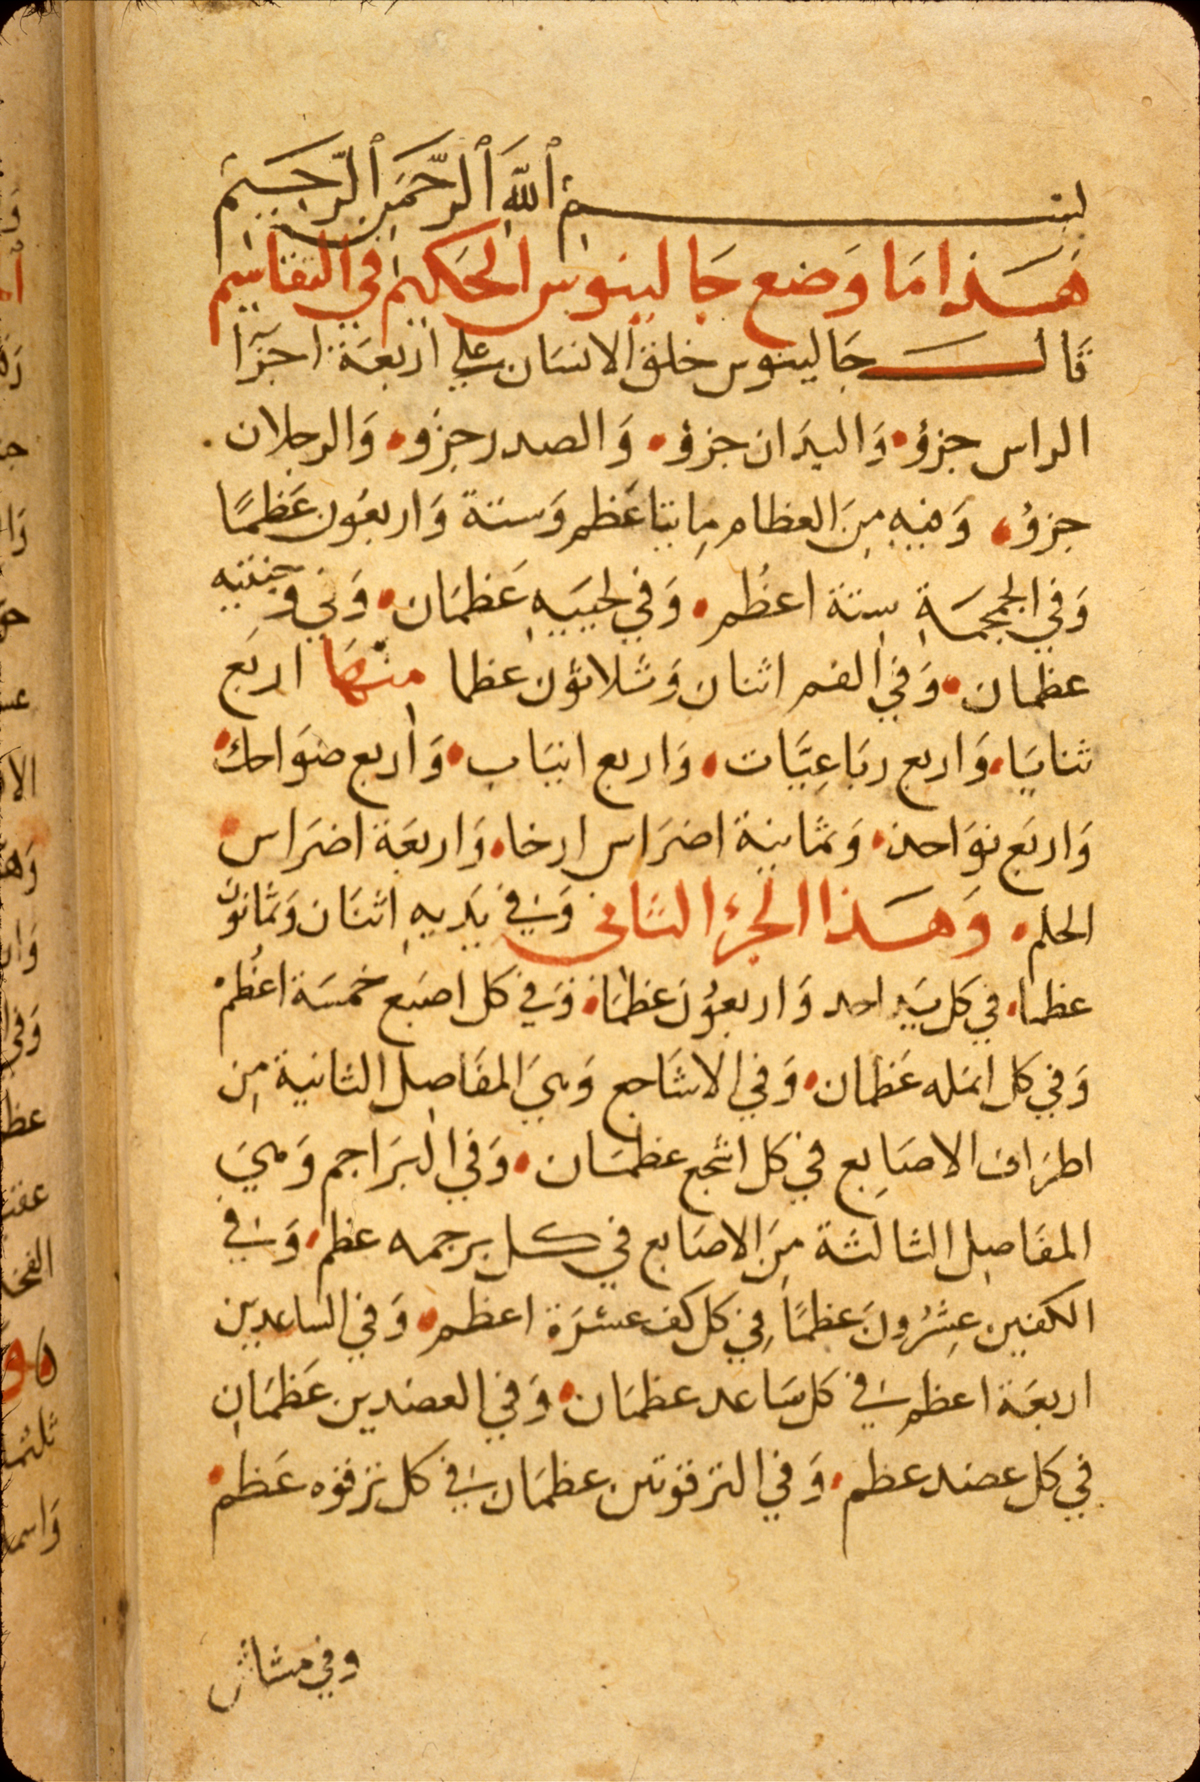 بِسْمِ ٱللَّهِ ٱلرَّحْمَنِ ٱلرَّحِيمِ
هَذا مَا وَضع جَالينوس الحَكيم في التقاسيم
قَال جَالينوس خلق الانسَان على اربعَة اجزَآا
الراس جزؤ، وَاليدَان جزؤ، وَالصدر جزؤ، وَالرجلان
جزؤ، وَفيه مِنَ العظام مِايتا عَظم وَستة وَاربعُون عَظمًا
وَفي الجمجمَةِ ستة اعظُم، وَفي لحييَهِ عَظمَان، وَفي وجنتيه
عظمان، وَفي الفم اثنان وَثلاثون عظما منهَا اربَع
ثنايَا، وَاربع ربَاعِيَّات، وَاربع انيَاب، وَأربع ضوَاحك،
وَاربَع نوَاجذ، وَثمَانية اضرَاس ارخا، وَاربعَة اضرَاس
الحلم، وَهَذا الجزء الثاني وَفي يَديهِ اثنَان وَثمَانونَ
عظما، في كل يَد احد وَاربعُونَ عظمَا، وَفي كل اصبَع خمسَة اعظُم
وَفي كل انمله عَظمان، وَفي الاشَاجع وَهيَ المفَاصِل الثانية مِن
اطرَاف الاصَابِع في كل اشجع عظمَان، وَفي البَرَاجم وَهيَ
المفَاصِل الثالثة مِنَ الاصَابع في كل برجمه عظم، وَفي
الكفين عِشرُونَ عَظمًا في كل كف عشرَة اعظم، وَفي السَاعدين
اربعَة اعظم في كل سَاعد عظمَان، وَفي العضدين عَظمَان
في كل عضد عظم، وَفي الترقوتين عظمَان في كل ترقوه عَظم،
وفي مشاش